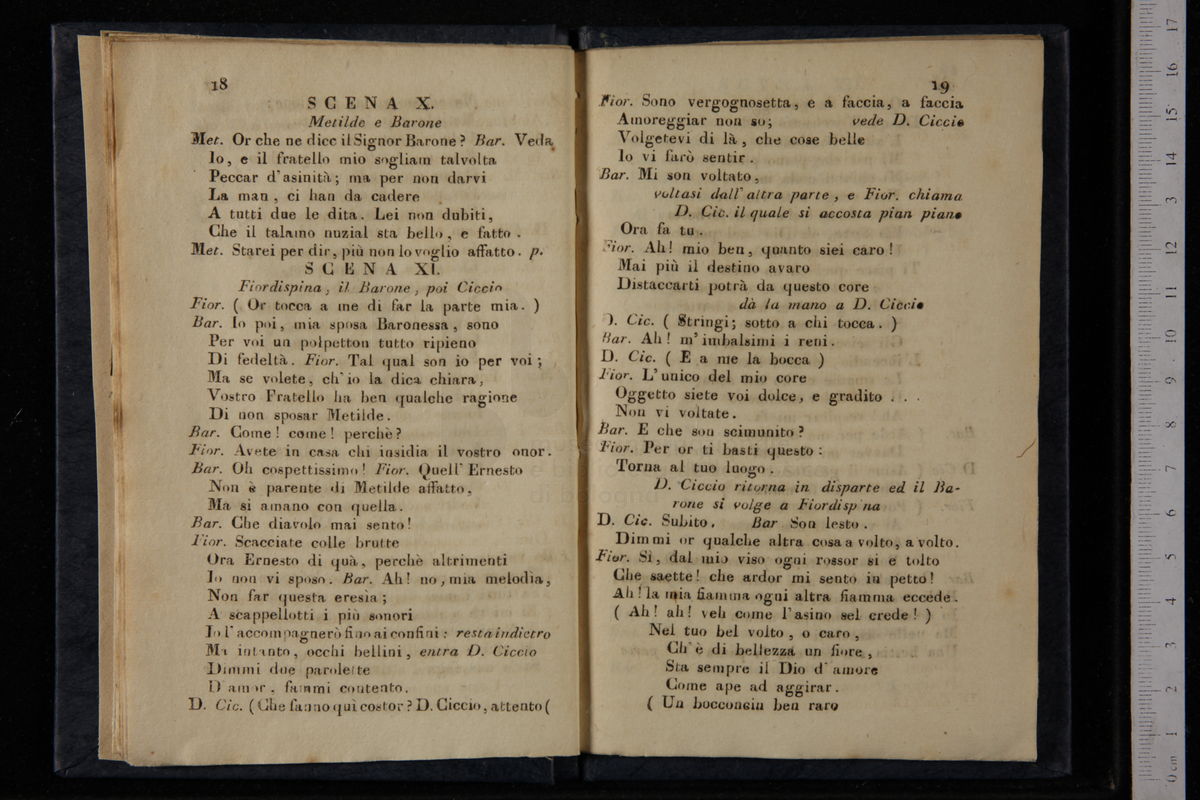 18
SCENA X.
Metilde e Barone
Met. Or che ne dice il Signor Barone? Bar. Veda
Io, e il fratello mio sogliam talvolta
Peccar d'asinità; ma per non darvi
La man, ci han da cadere
A tutti due le dita. Lei non dubiti,
Che il talamo nuzial sta bello, e fatto.
Met. Starei per dir, più non lo voglio affatto. p.
SCENA XI.
Fiordispina, il Barone, poi Ciccio
Fior. ( Or tocca a me di far la parte mia. )
Bar. Io poi, mia sposa Baronessa, sono
Per voi un polpetton tutto ripieno
Di fedeltà. Fior. Tal qual son io per voi;
Ma se volete, ch'io la dica chiara,
Vostro Fratello ha ben qualche ragione
Di non sposar Metilde.
Bar. Come! come! perchè?
Fior. Avete in casa chi insidia il vostro onor.
Bar. Oh cospettissimo! Fior. Quell' Ernesto
Non è parente di Metilde affatto,
Ma si amano con quella.
Bar. Che diavolo mai sento!
Fior. Scacciate colle brutte
Ora Ernesto di quà, perchè altrimenti
Io non vi sposo. Bar. Ah! no, mia melodìa,
Non far questa eresìa;
A scappellotti i più sonori
Io l'accompagnerò fino ai confini: resta indietro
Ma intanto, occhi bellini, entra D. Ciccio
Dimmi due parolette
D'amor, fammi contento.
D. Cic. ( Che fanno quì costor? D. Ciccio, attento (
19
Fior. Sono vergognosetta, e a faccia, a faccia
Amoreggiar non so; vede D. Ciccio
Volgetevi di là, che cose belle
Io vi farò sentir.
Bar. Mi son voltato,
voltasi dall' altra parte, e Fior. chiama
D. Cic. il quale si accosta pian piano
Ora fa tu.
Fior. Ah! mio ben, quanto siei caro!
Mai più il destino avaro
Distaccarti potrà da questo core
dà la mano a D. Ciccio
D. Cic. ( Stringi; sotto a chi tocca. )
Bar. Ah! m'imbalsimi i reni.
D. Cic. ( E a me la bocca )
Fior. L'unico del mio core
Oggetto siete voi dolce, e gradito . . .
Non vi voltate.
Bar. E che son scimunito?
Fior. Per or ti basti questo:
Torna al tuo luogo.
D. Ciccio ritorna in disparte ed il Ba-
rone si volge a Fiordisp na
D. Cic. Subito. Bar Son lesto.
Dimmi or qualche altra cosa a volto, a volto.
Fior. Sì, dal mio viso ogni rossor si è tolto
Che saette! che ardor mi sento in petto!
Ah! la mia fiamma ogni altra fiamma eccede.
( Ah! ah! veh come l'asino sel crede! )
Nel tuo bel volto, o caro,
Ch'è di bellezza un fiore,
Sta sempre il Dio d'amore
Come ape ad aggirar.
( Un bocconcin ben raro
0 cm 1 2 3 4 5 6 7 8 9 10 11 12 13 14 15 16 17